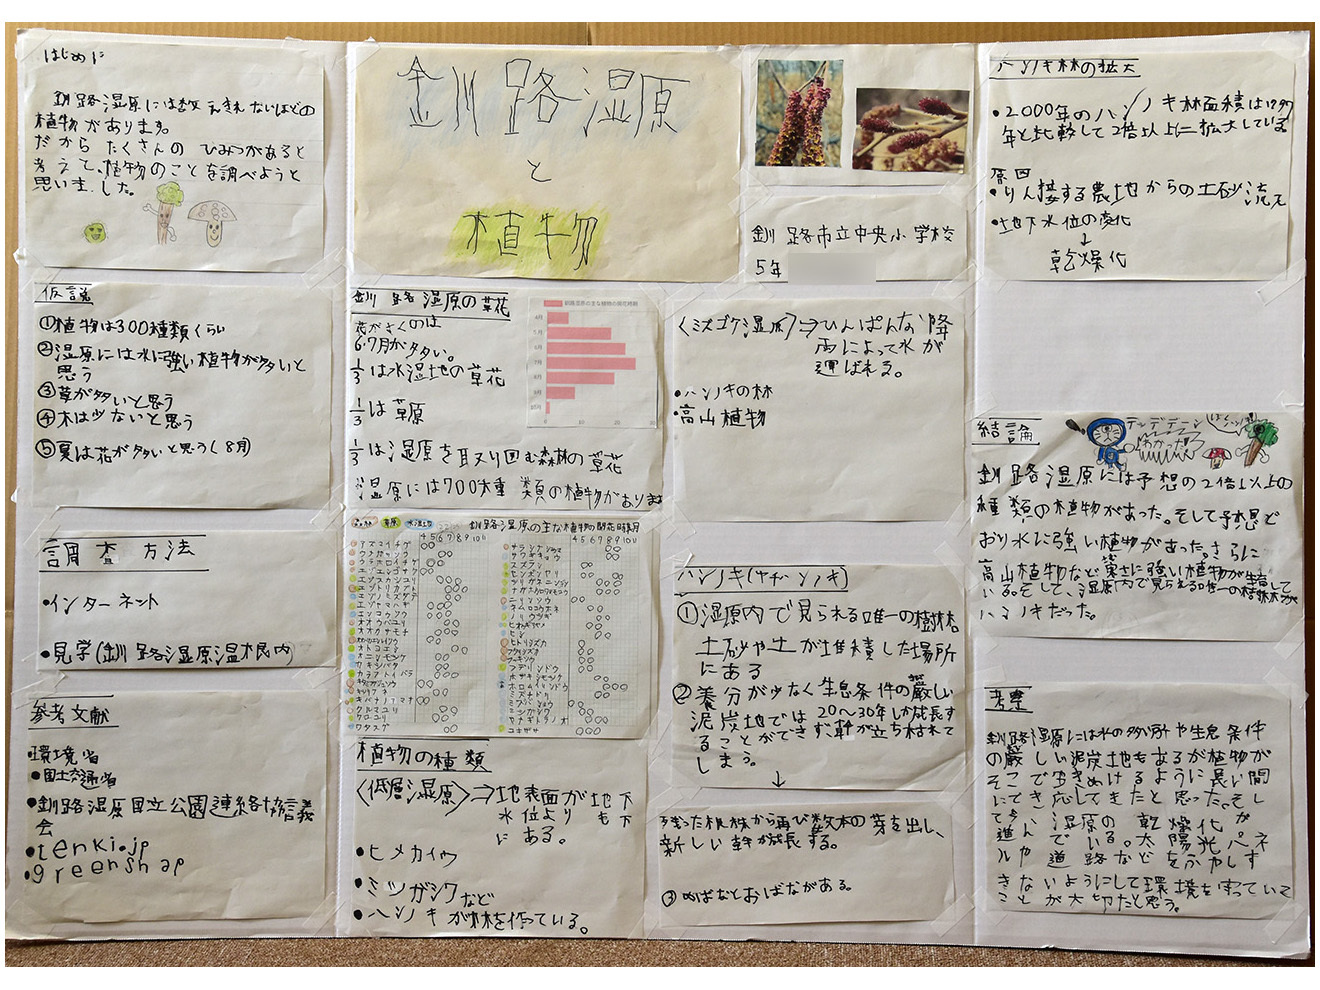 はじめに
釧路湿原には数えきれないほどの
植物があります。
だからたくさんのひみつがあると
考えて、植物のことを調べようと
思いました。
釧路湿原
と
植物
釧路市立中央小学校
5年
仮説
①植物は300種類くらい
②湿原には水に強い植物が多いと
思う
③草が多いと思う
④木は少ないと思う
⑤夏は花が多いと思う(8月)
調査方法
•インターネット
•見学(釧路湿原温根内)
参考文献
•環境省
•国土交通省
•釧路湿原国立公園連絡協議
会
•tenki.jp
•greensnap
釧路湿原の草花
花がさくのは
6.7月が多い。
1/3は水湿地の草花
1/3は草原
1/3は湿原を取り囲む森林の草花
湿原には700種類の植物があります
釧路湿原の主な植物の開花時期
4月
5月
6月
7月
8月
9月
10月
0 10 20 30
草原 水湿地
釧路湿原の主な植物の開花時期
4 5 6 7 8 9 10 11
4 5 6 7 8 9 10 11
オトコエシ
カキツバタ
クロユリ
ワタスゲ
植物の種類
〈低層湿原〉⇒地表面が地下
水位よりも下
にある。
•ヒメカイウ
•ミツガシワなど
•ハンノキが林を作っている。
〈ミズゴケ湿原〉⇒ひんぱんな降
雨によって水が
運ばれる。
•ハンノキの林
•高山植物
ハンノキ(ヤチハンノキ)
①湿原内で見られる唯一の樹林
土砂や土が堆積した場所
にある
②養分が少なく生息条件の厳しい
泥炭地では20〜30年しか成長す
ることができず、幹が立ち枯れて
しまう。
↓
残った根株から再び数本の芽を出し、
新しい幹が成長する。
③めばなとおばながある。
ハンノキ林の拡大
•2000年のハンノキ林面積は1947
年と比較して2倍以上に拡大している
原因
•りん接する農地からの土砂流入
•地下水位の変化
↓
乾燥化
結論
テッデデーン
わかった
釧路湿原には予想の2倍以上の
種類の植物があった。そして予想ど
おり水に強い植物があった。さらに
高山植物など寒さに強い植物が生育して
いる。そして、湿原内で見られる唯一の樹林が
ハンノキだった。
考察
釧路湿原には水の多い所や生息条件
の厳しい泥炭地もあるが植物が
そこで生きぬけるように長い間
にてき応してきたと思った。そし
て今、湿原の乾燥化が
進んでいる。太陽光パネ
ルや道路などをふやしす
ぎないようにして環境を守っていく
ことが大切だと思う。